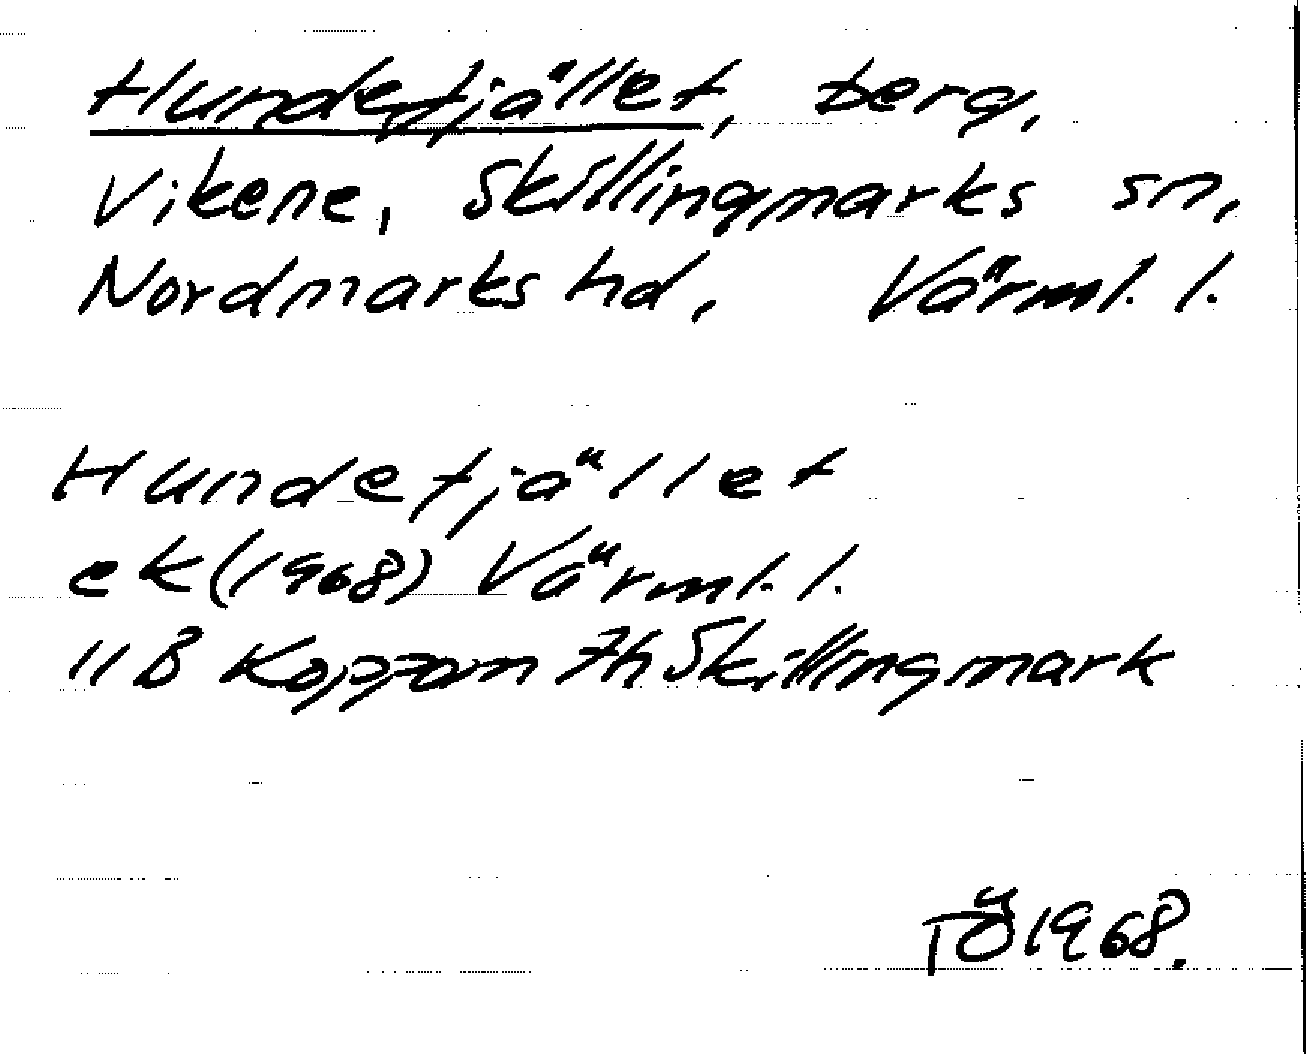 Hundefjället, berg,
Vikene, Skillingmarks sn,
Nordmarks hd, Värml. l.
Hundefjället
ek (1968) Värml. l.
11B Koppom 7h Skillingmark
TÖ 1968.